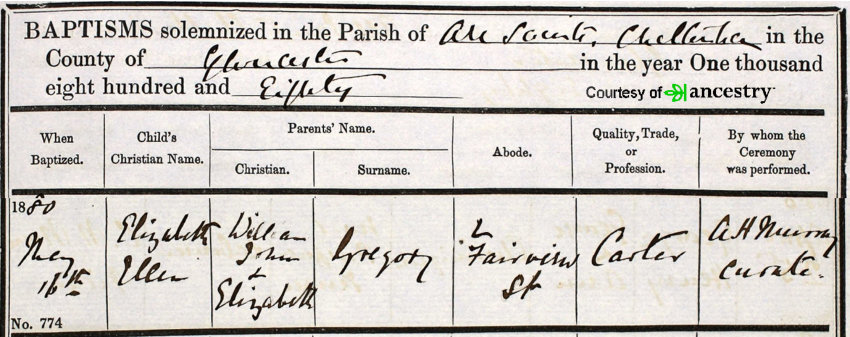 BAPTISMS solemnized in the Parish of All Saints, Cheltenham in the
County of Gloucester in the year One thousand
eight hundred and Eighty
Courtesy of ancestry
When
Baptized.
Child's
Christian Name.
Parents' Name.
Christian.
Surname.
Abode.
Quality, Trade,
or
Profession.
By whom the
Ceremony
was performed.
1880
May
16th
No. 774
Elizabeth
Ellen
William
John
&
Elizabeth
Gregory
2
Fairview
St
Carter
A H Murray
Curate.